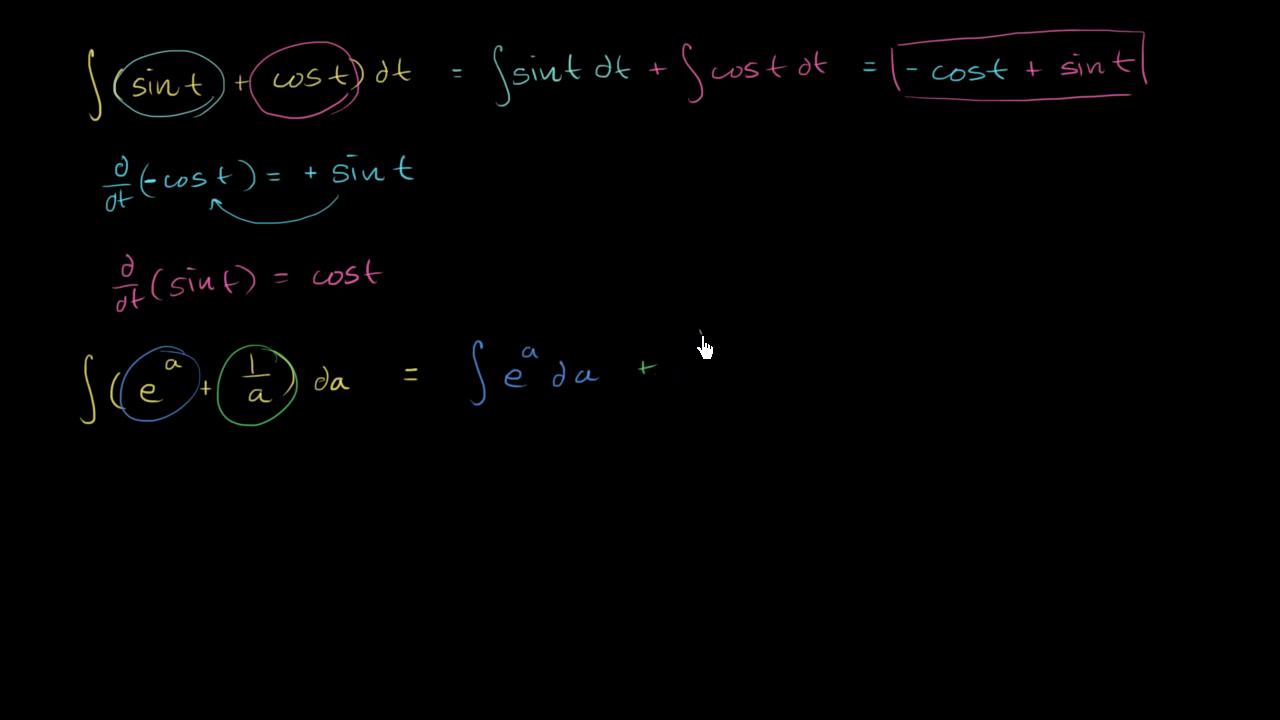 ∫(sin t + cos t) dt = ∫sin t dt + ∫cos t dt = -cos t + sin t
d/dt(-cos t) = + sin t
d/dt(sin t) = cos t
∫(e^a + 1/a) da = ∫e^a da +